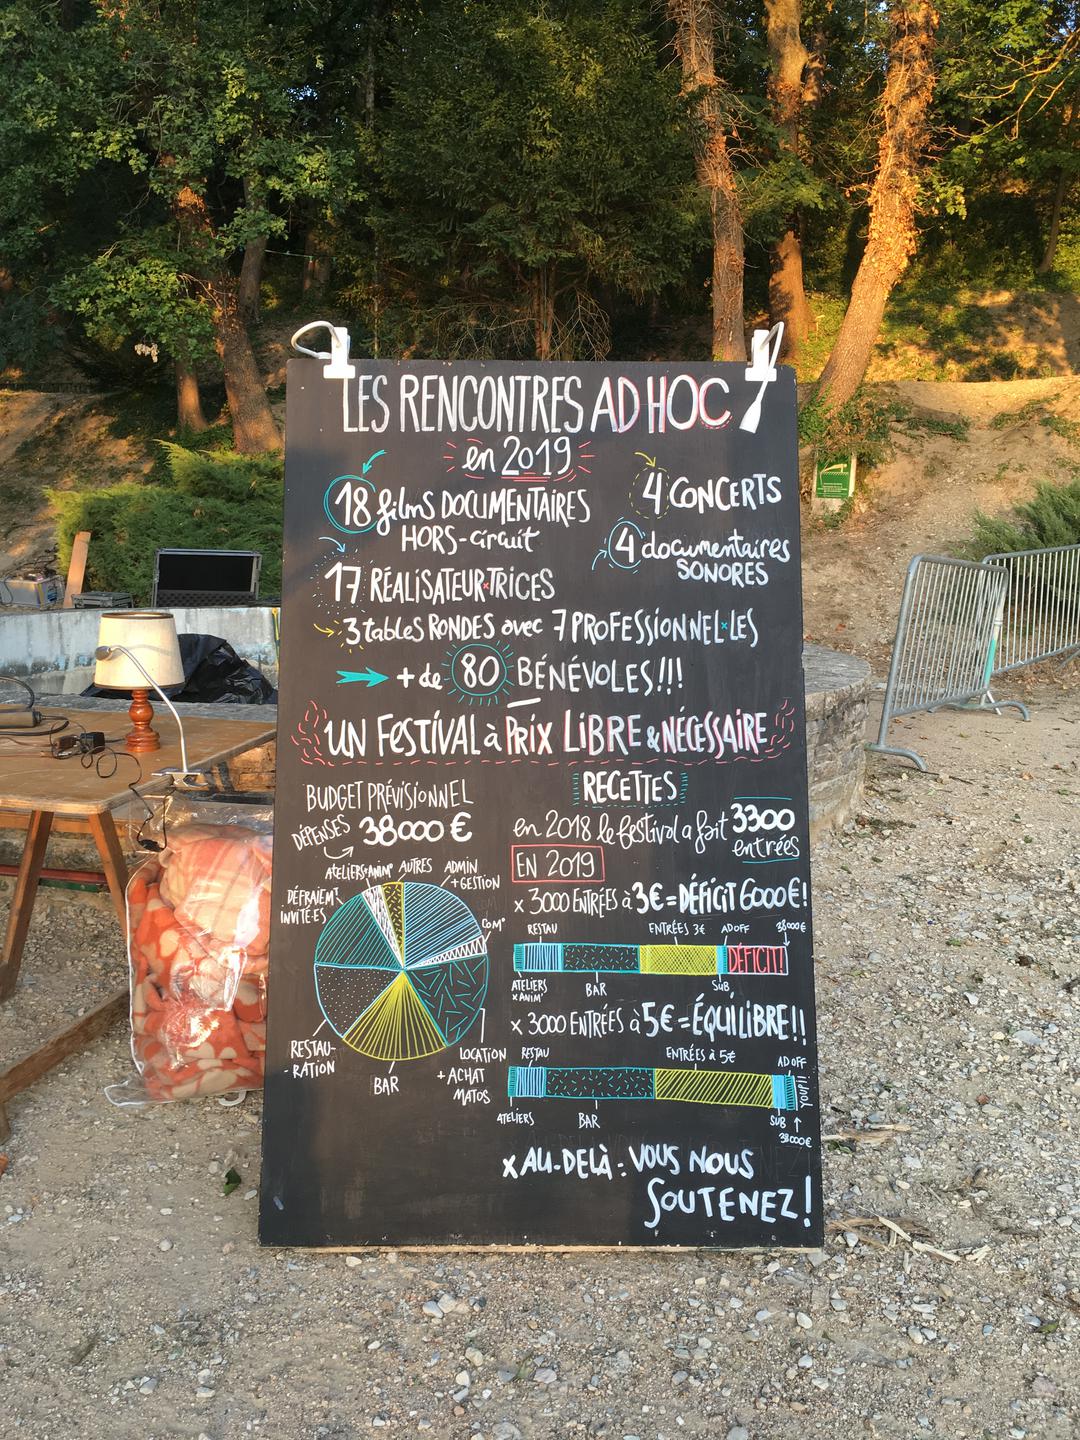 LES RENCONTRES AD HOC
en 2019
18 films DOCUMENTAIRES
HORS-circuit
4 CONCERTS
4 documentaires
SONORES
17 RÉALISATEUR×TRICES
3 tables RONDES avec 7 PROFESSIONNEL×LES
+ de 80 BÉNÉVOLES!!!
UN FESTIVAL à PRIX LIBRE & NÉCESSAIRE
BUDGET PRÉVISIONNEL
DÉPENSES 38000 €
ATELIERS×ANIM°
AUTRES
ADMIN
+GESTION
DÉFRAIEMT
INVITÉ·ES
COM°
RESTAU-
RATION
BAR
LOCATION
+ ACHAT
MATOS
RECETTES
en 2018 le festival a fait 3300
entrées
EN 2019
x 3000 ENTRÉES à 3€ = DÉFICIT 6000€!
RESTAU
ENTRÉES 3€
AD OFF
38000€
DÉFICIT!
ATELIERS
×ANIM°
BAR
SUB
x 3000 ENTRÉES à 5€ = ÉQUILIBRE!!
RESTAU
ENTRÉES à 5€
AD OFF
YOUPI!!
ATELIERS
BAR
SUB
38000€
x AU-DELÀ : VOUS NOUS
SOUTENEZ!